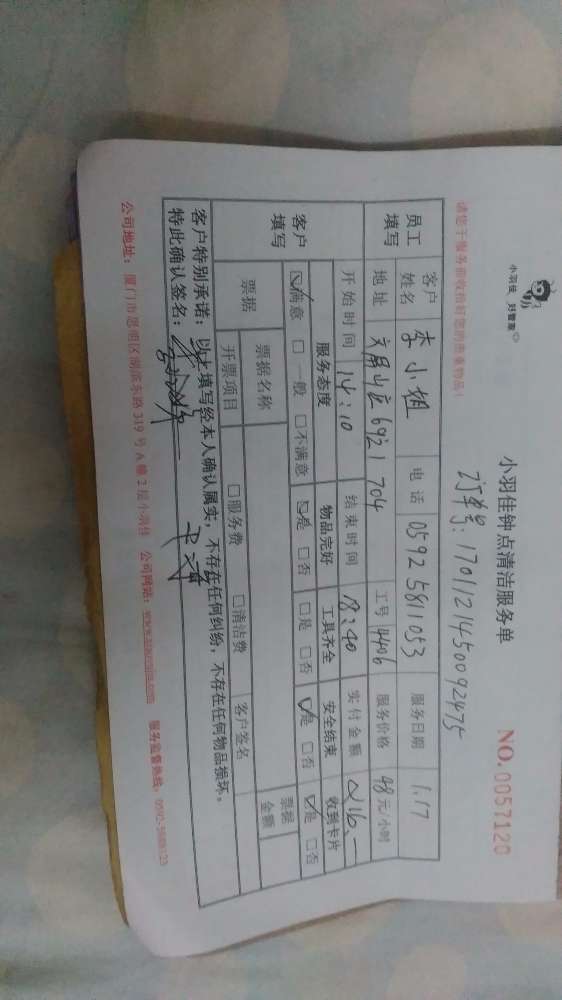 小羽佳 好管家
小羽佳钟点清洁服务单
NO.0057120
订单号:17011214500092475
请您于服务前收拾好您的贵重物品!
员工填写 客户姓名 李小姐 电话 0592 5811053 服务日期 1.17
地址 文屏山庄69号1 704 工号 4406 服务价格 48元/小时
开始时间 14:10 结束时间 18:40 实付金额 216.-
客户填写 服务态度 物品完好 工具齐全 安全结束 收到卡片
☑满意 □一般 □不满意 ☑是 □否 □是 □否 ☑是 □否 ☑是 □否
票据 票据名称 票据金额
开票项目 □服务费 □清洁费 客户签名
客户特别承诺:以上填写经本人确认属实,不存在任何纠纷,不存在任何物品损坏。
特此确认签名:
公司地址:厦门市思明区湖滨东路319号A幢2层小羽佳 公司网站: 服务监督热线: